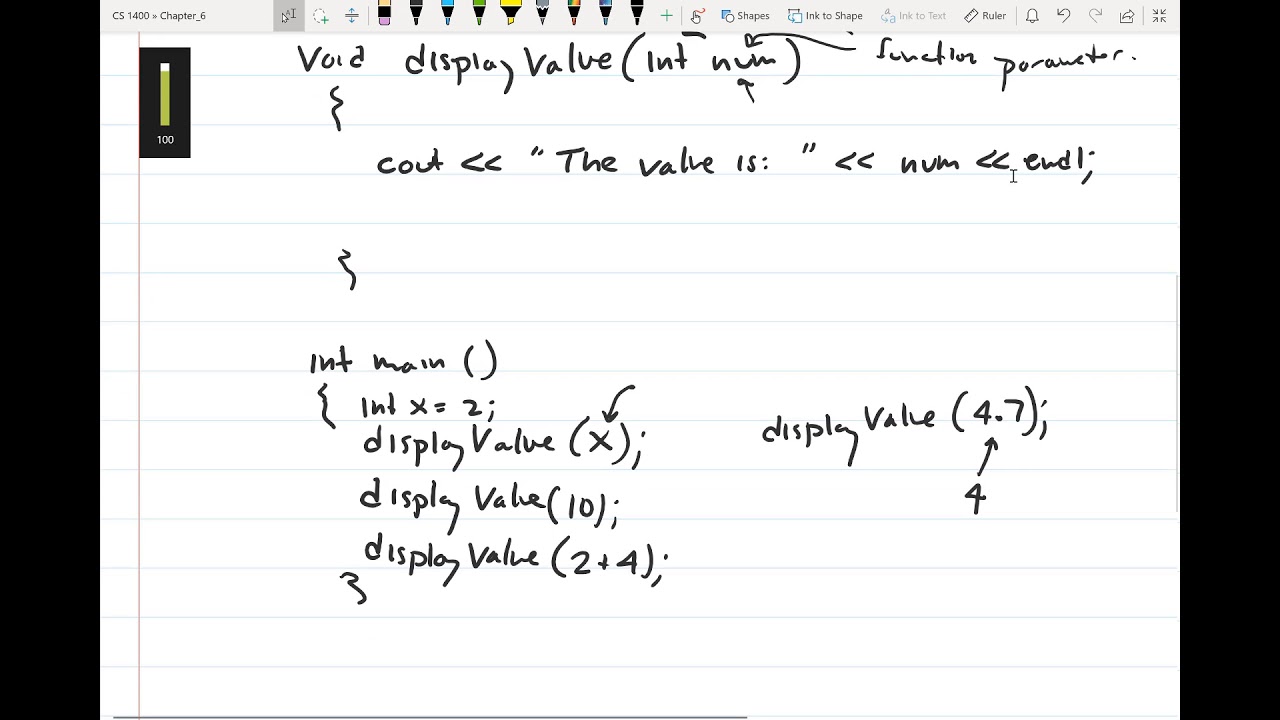 CS 1400 » Chapter_6
Shapes
Ink to Shape
Ink to Text
Ruler
100
Void displayValue(int num)
function parameter.
{
cout << "The value is: " << num << endl;
}
int main ()
{ int x = 2;
displayValue (x);
displayValue (4.7);
4
displayValue(10);
displayValue (2+4);
}